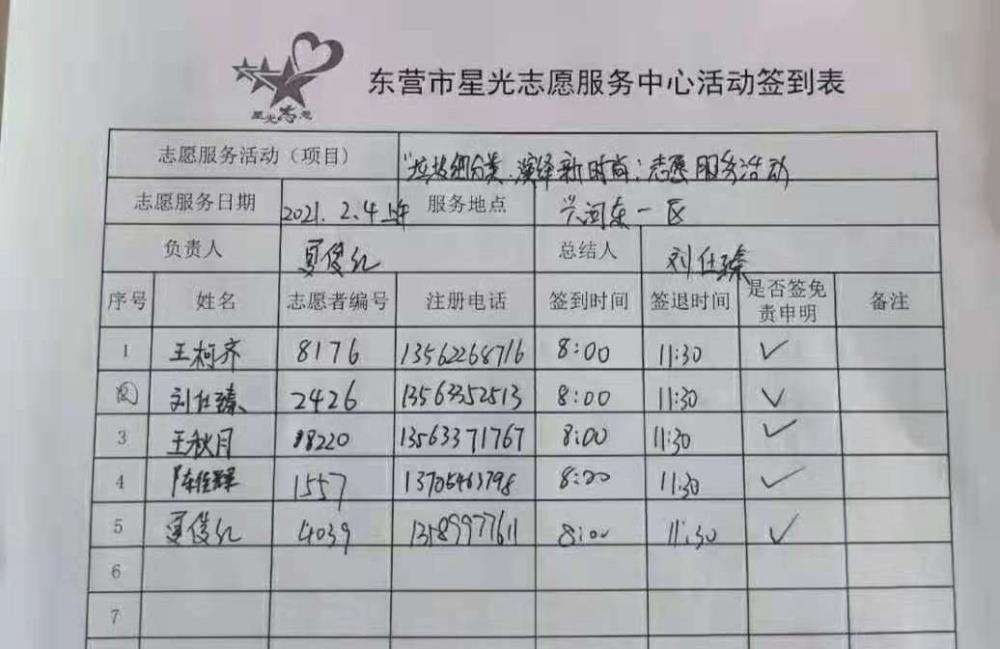 星光志愿
东营市星光志愿服务中心活动签到表
志愿服务活动（项目） "垃圾细分类、演绎新时尚；志愿服务活动
志愿服务日期 2021.2.4上午 服务地点 兴河东一区
负责人 夏俊红 总结人 刘仕臻
序号 姓名 志愿者编号 注册电话 签到时间 签退时间 是否签免责申明 备注
1 王柯齐 8176 13562268716 8:00 11:30 ✓
刘仕臻 2426 13563352513 8:00 11:30 ✓
3 王秋月 18220 13563371767 8:00 11:30 ✓
4 1557 13705463798 8:00 11:30 ✓
5 夏俊红 4039 13589977611 8:00 11:30 ✓
6
7